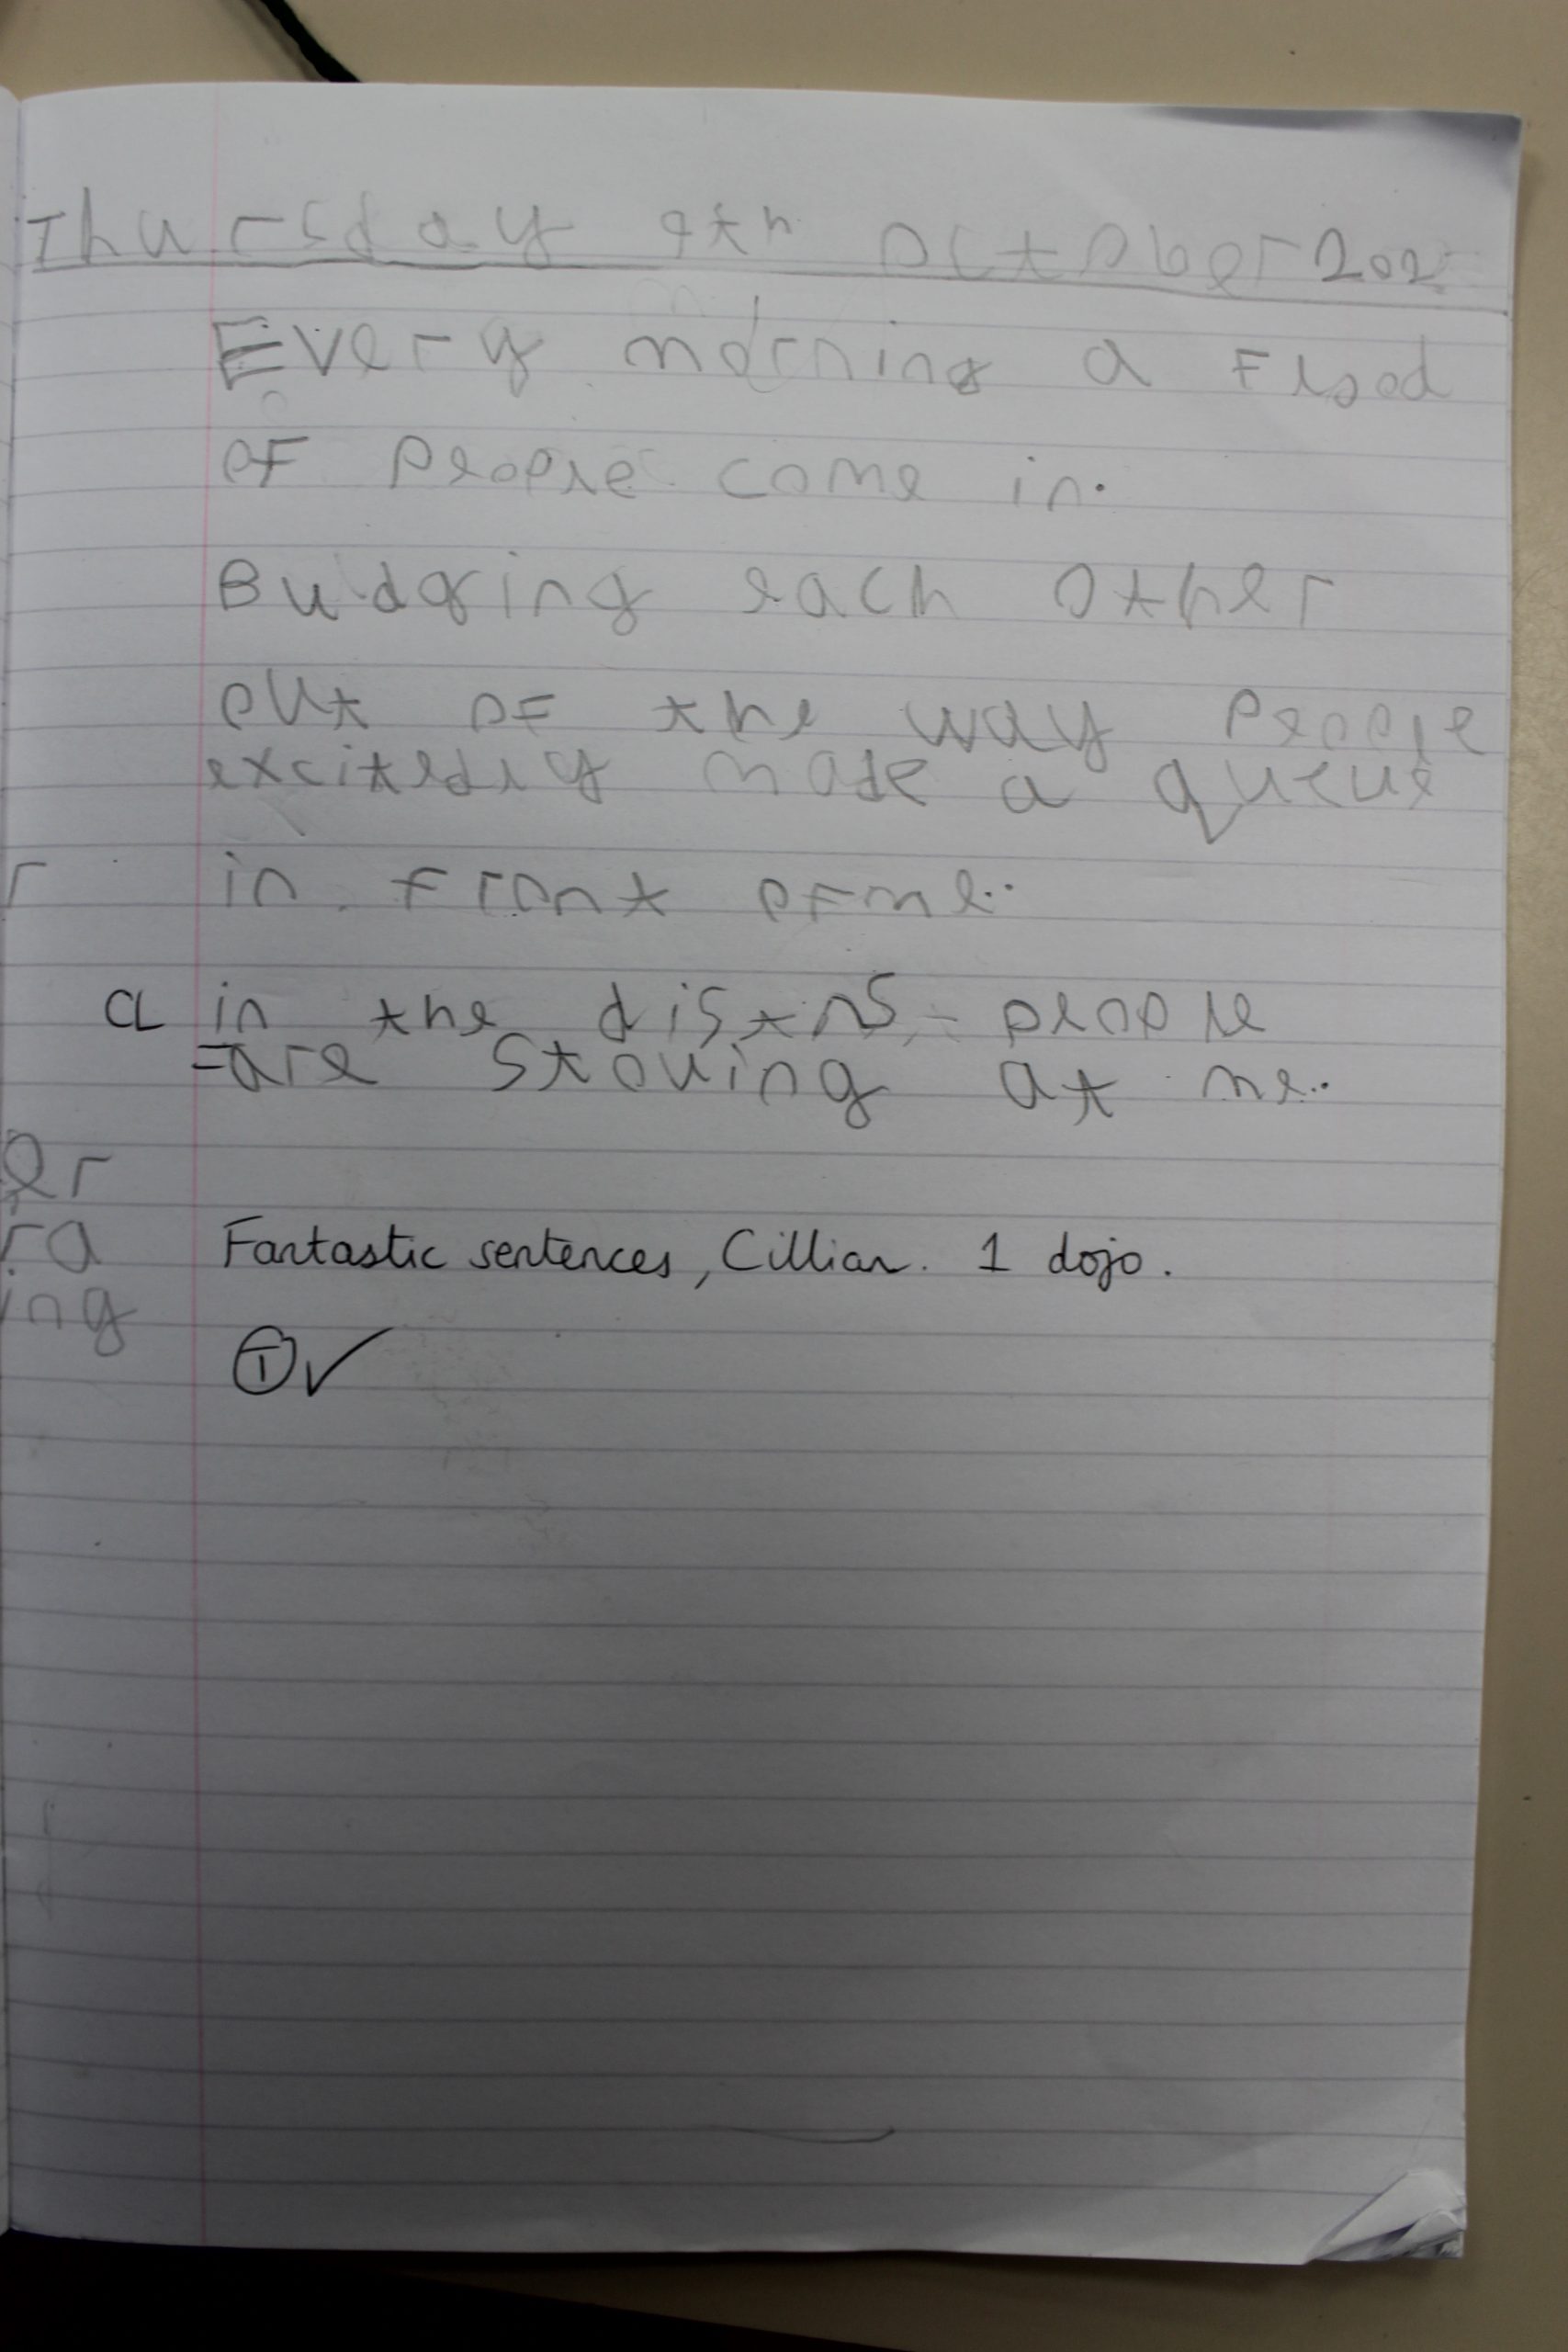 Thursday 9th October 202
Every morning a Flood
oF people come in.
Budgring each other
out oF the way people
excitedly made a queue
r in Front oF me..
CL in the distns people
are stouing at me..
er
Fantastic sentences, Cillian. 1 dojo.
ra
ing
T ✓